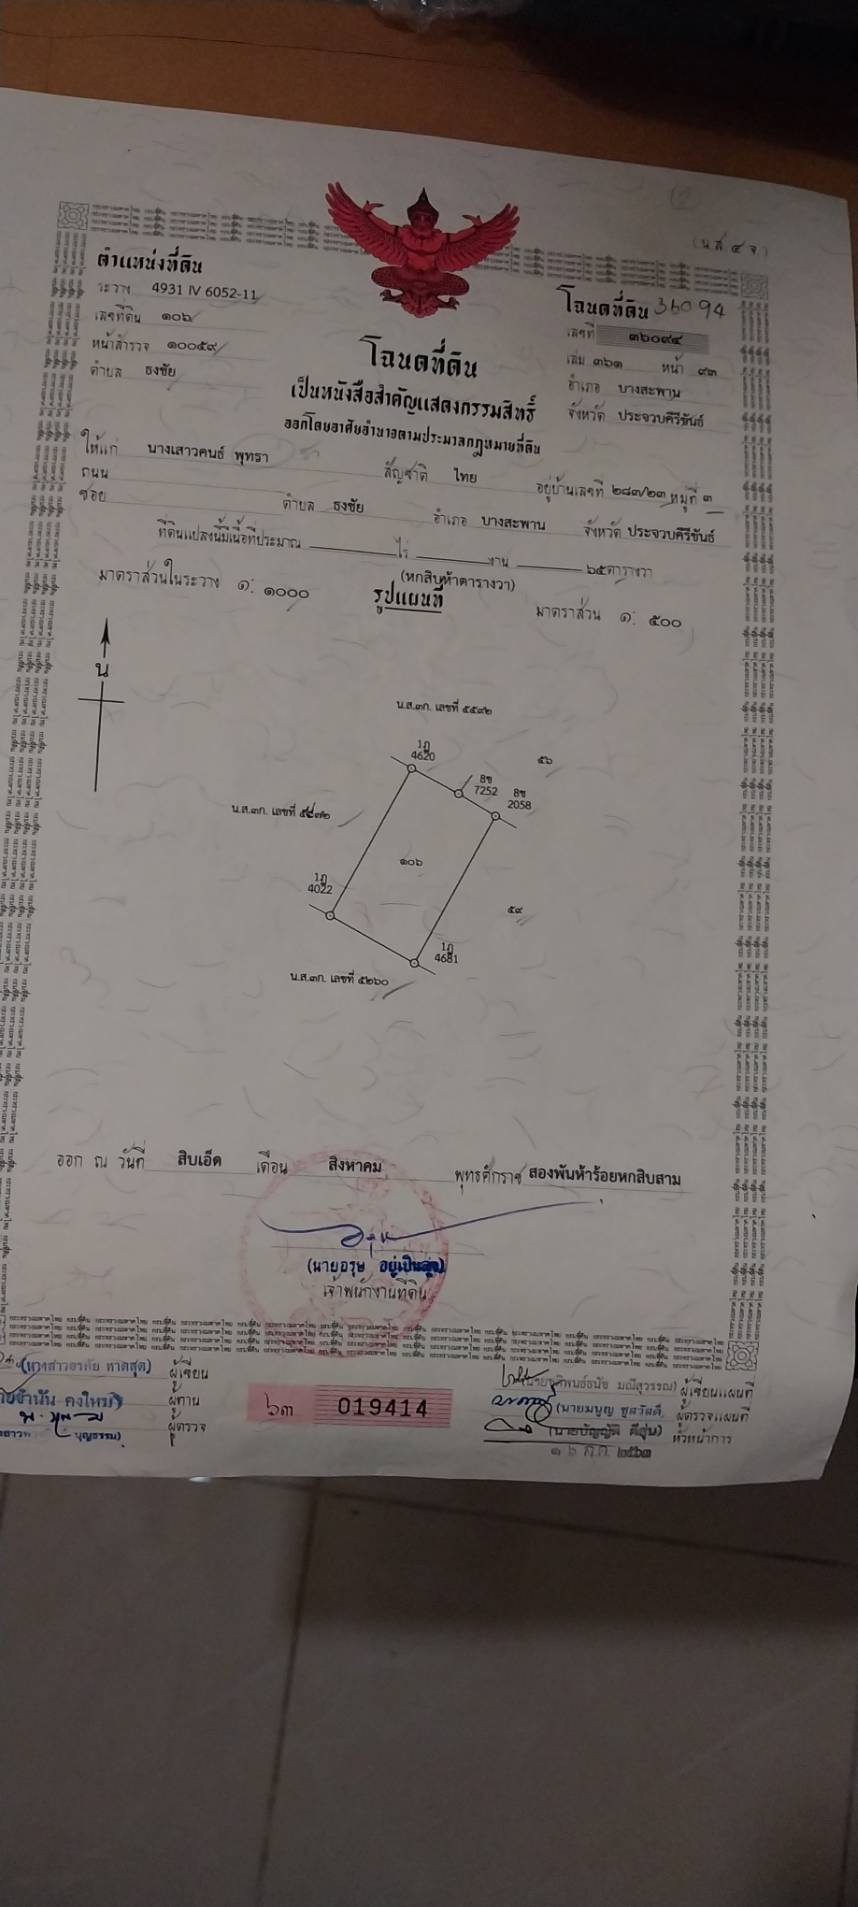 (น.ส. ๔ จ.)
ตำแหน่งที่ดิน
ระวาง 4931 IV 6052-11
เลขที่ดิน ๑๐๖
หน้าสำรวจ ๑๐๐๕๙
ตำบล ธงชัย
โฉนดที่ดิน 36094
เลขที่ ๓๖๐๙๔
เล่ม ๓๖๑ หน้า ๙๓
อำเภอ บางสะพาน
จังหวัด ประจวบคีรีขันธ์
โฉนดที่ดิน
เป็นหนังสือสำคัญแสดงกรรมสิทธิ์
ออกโดยอาศัยอำนาจตามประมวลกฎหมายที่ดิน
ให้แก่ นางเสาวคนธ์ พุทธา สัญชาติ ไทย อยู่บ้านเลขที่ ๒๘๓/๒๓ หมู่ที่ ๓
ถนน
ซอย ตำบล ธงชัย อำเภอ บางสะพาน จังหวัด ประจวบคีรีขันธ์
ที่ดินแปลงนี้มีเนื้อที่ประมาณ ไร่ งาน ๖๕ ตารางวา
(หกสิบห้าตารางวา)
มาตราส่วนในระวาง ๑: ๑๐๐๐ รูปแผนที่ มาตราส่วน ๑: ๕๐๐
น
น.ส.๓ก. เลขที่ ๕๕๙๒
1ฎ
4620
๕๖
8ข
7252
8ข
2058
น.ส.๓ก. เลขที่
๑๐๖
1ฎ
4022
๕๙
1ฎ
4681
น.ส.๓ก. เลขที่ ๕๒๖๐
ออก ณ วันที่ สิบเอ็ด เดือน สิงหาคม พุทธศักราช สองพันห้าร้อยหกสิบสาม
(นายอรุษ อยู่เป็นสุข)
เจ้าพนักงานที่ดิน
ผู้เขียน
ผู้ทาน
ผู้ตรวจ
บุญธรรม)
๖๓ 019414
มณีสุวรรณ) ผู้เขียนแผนที่
(นายมนูญ ชูสวัสดิ์) ผู้ตรวจแผนที่
(นายบัญญัติ ดีสุ่น) หัวหน้าการ
๒๕๖๓